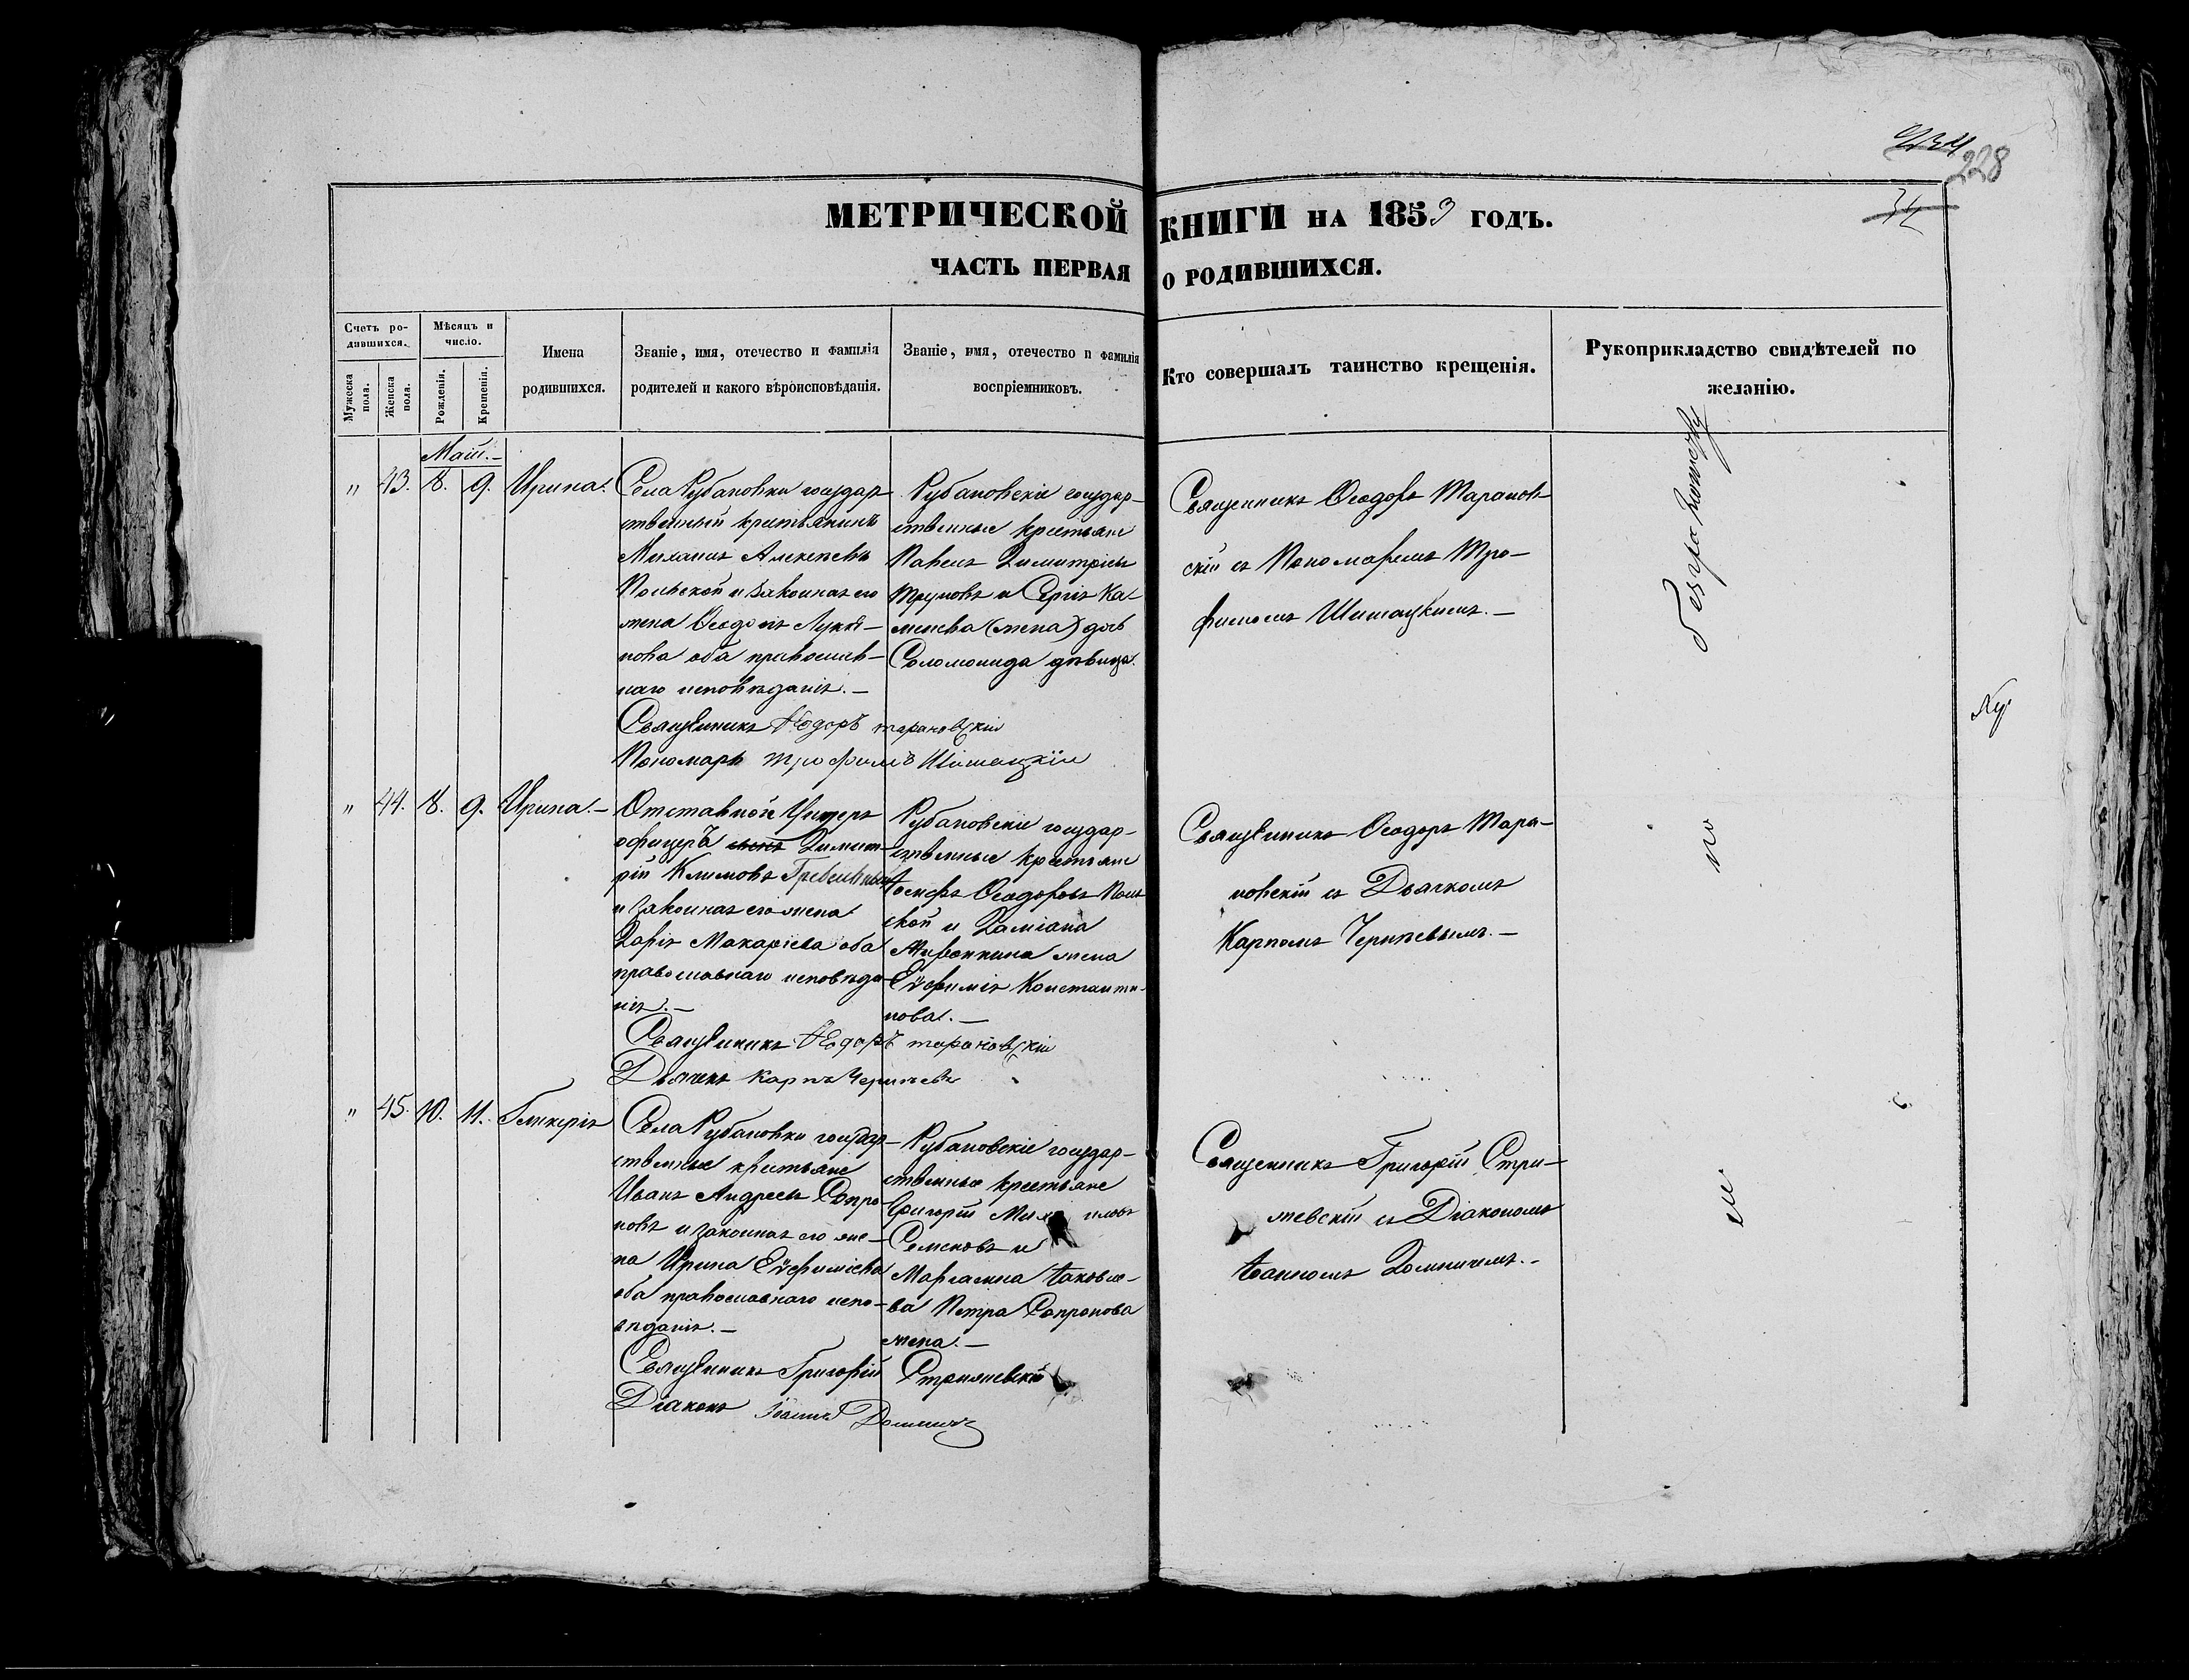 228
МЕТРИЧЕСКОЙ КНИГИ НА 1859 ГОДЪ.
34
ЧАСТЬ ПЕРВАЯ О РОДИВШИХСЯ.
Счетъ родившихся.
Мужеска пола.
Женска пола.
Мѣсяцъ и число.
Рожденія.
Крещенія.
Имена родившихся.
Званіе, имя, отечество и фамилія
родителей и какого вѣроисповѣданія.
Званіе, имя, отечество и фамилія
воспріемниковъ.
Кто совершалъ таинство крещенія.
Рукоприкладство свидѣтелей по
желанію.
Маій.
" 43. 8. 9. Ирина.
Села Рубановки государ
ственный крестьянинъ
Михаилъ Алексѣевъ
Польской и законная его
жена Ѳеодосія Лукія-
нова оба православ-
наго исповѣданія.
Священникъ Ѳеодоръ Тарановскій
Пономарь Трофимъ Шишацкій
Рубановскіе государ-
ственные крестьяне
Павелъ Димитріевъ
Труновъ и Сергія Ка-
(жена) дочь
Соломонида дѣвица.
Священникъ Ѳеодоръ Таранов-
скій съ Пономаремъ Тро-
фимомъ Шишацкимъ.
" 44. 8. 9. Ирина.
Отставной Унтеръ
офицеръ Димит-
рій Климовъ
и законная его жена
Дарія Макаріева оба
православнаго исповѣда-
нія.
Священникъ Ѳеодоръ Тарановскій
Дьячекъ Карпъ Черняевъ
Рубановскіе государ-
ственные крестьяне
Іосифъ Ѳеодоровъ Поль
ской и Даміана
жена
Евфимія Константи-
нова.
Священникъ Ѳеодоръ Тара-
новскій съ Дьячкомъ
Карпомъ Черняевымъ.
" 45. 10. 11. Гликерія
Села Рубановки государ-
ственные крестьяне
Иванъ Андреевъ Сопро
новъ и законная его же-
на Ирина Евфиміева
оба православнаго испо-
вѣданія.
Священникъ Григорій Стрижевскій
Діаконъ Іоаннъ Домничъ
Рубановскіе государ-
ственные крестьяне
Григорій
Семеновъ и
Маріамна Іаковле-
ва Петра Сопронова
жена.
Священникъ Григорій Стри-
жевскій съ Діакономъ
Іоанномъ Домничемъ.
по